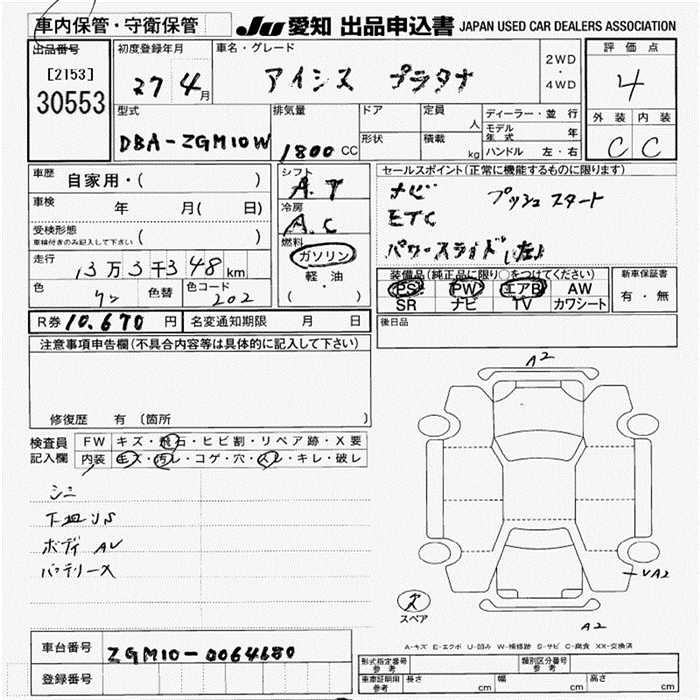 車内保管・守衛保管
JU 愛知 出品申込書 JAPAN USED CAR DEALERS ASSOCIATION
出品番号
[2153]
30553
初度登録年月
27 4月
車名・グレード
アイシス プラタナ
2WD
・
4WD
評価点
4
外装 内装
C C
型式
DBA-ZGM10W
排気量
1800 CC
ドア
形状
定員
人
積載
kg
ディーラー・並行
モデル年式 年
ハンドル 左・右
車歴
自家用・( )
車検
年 月( 日)
受検形態
車検付きのみ記入して下さい ( )
走行
13万3千348km
色
色替
色コード
202
シフト
A.T
冷房
A.C
燃料
ガソリン
・
軽・油
( )
セールスポイント(正常に機能するものに限ります)
ナビ プッシュスタート
ETC
パワースライド
装備品(純正品に限り○をつけてください)
PS PW エアB AW
SR ナビ TV カワシート
新車保証書
有・無
R券 10.670 円
名変通知期限 月 日
後日品
注意事項申告欄(不具合内容等は具体的に記入して下さい)
修復歴 有 〔箇所 〕
検査員記入欄
FW キズ・飛石・ヒビ割・リペア跡・X要
内装 キズ・汚レ・コゲ・穴・スレ・キレ・破レ
A2
シミ
下皿
ボディ
バッテリーX
A2
スペア
A2
A-キズ E-エクボ U-凹み W-補修跡 S-サビ C-腐食 XX-交換済
車台番号
ZGM10-0064680
登録番号
形式指定番号
参考
類別区分番号
参考
車庫証明用
参考
長さ cm
幅 cm
高さ cm